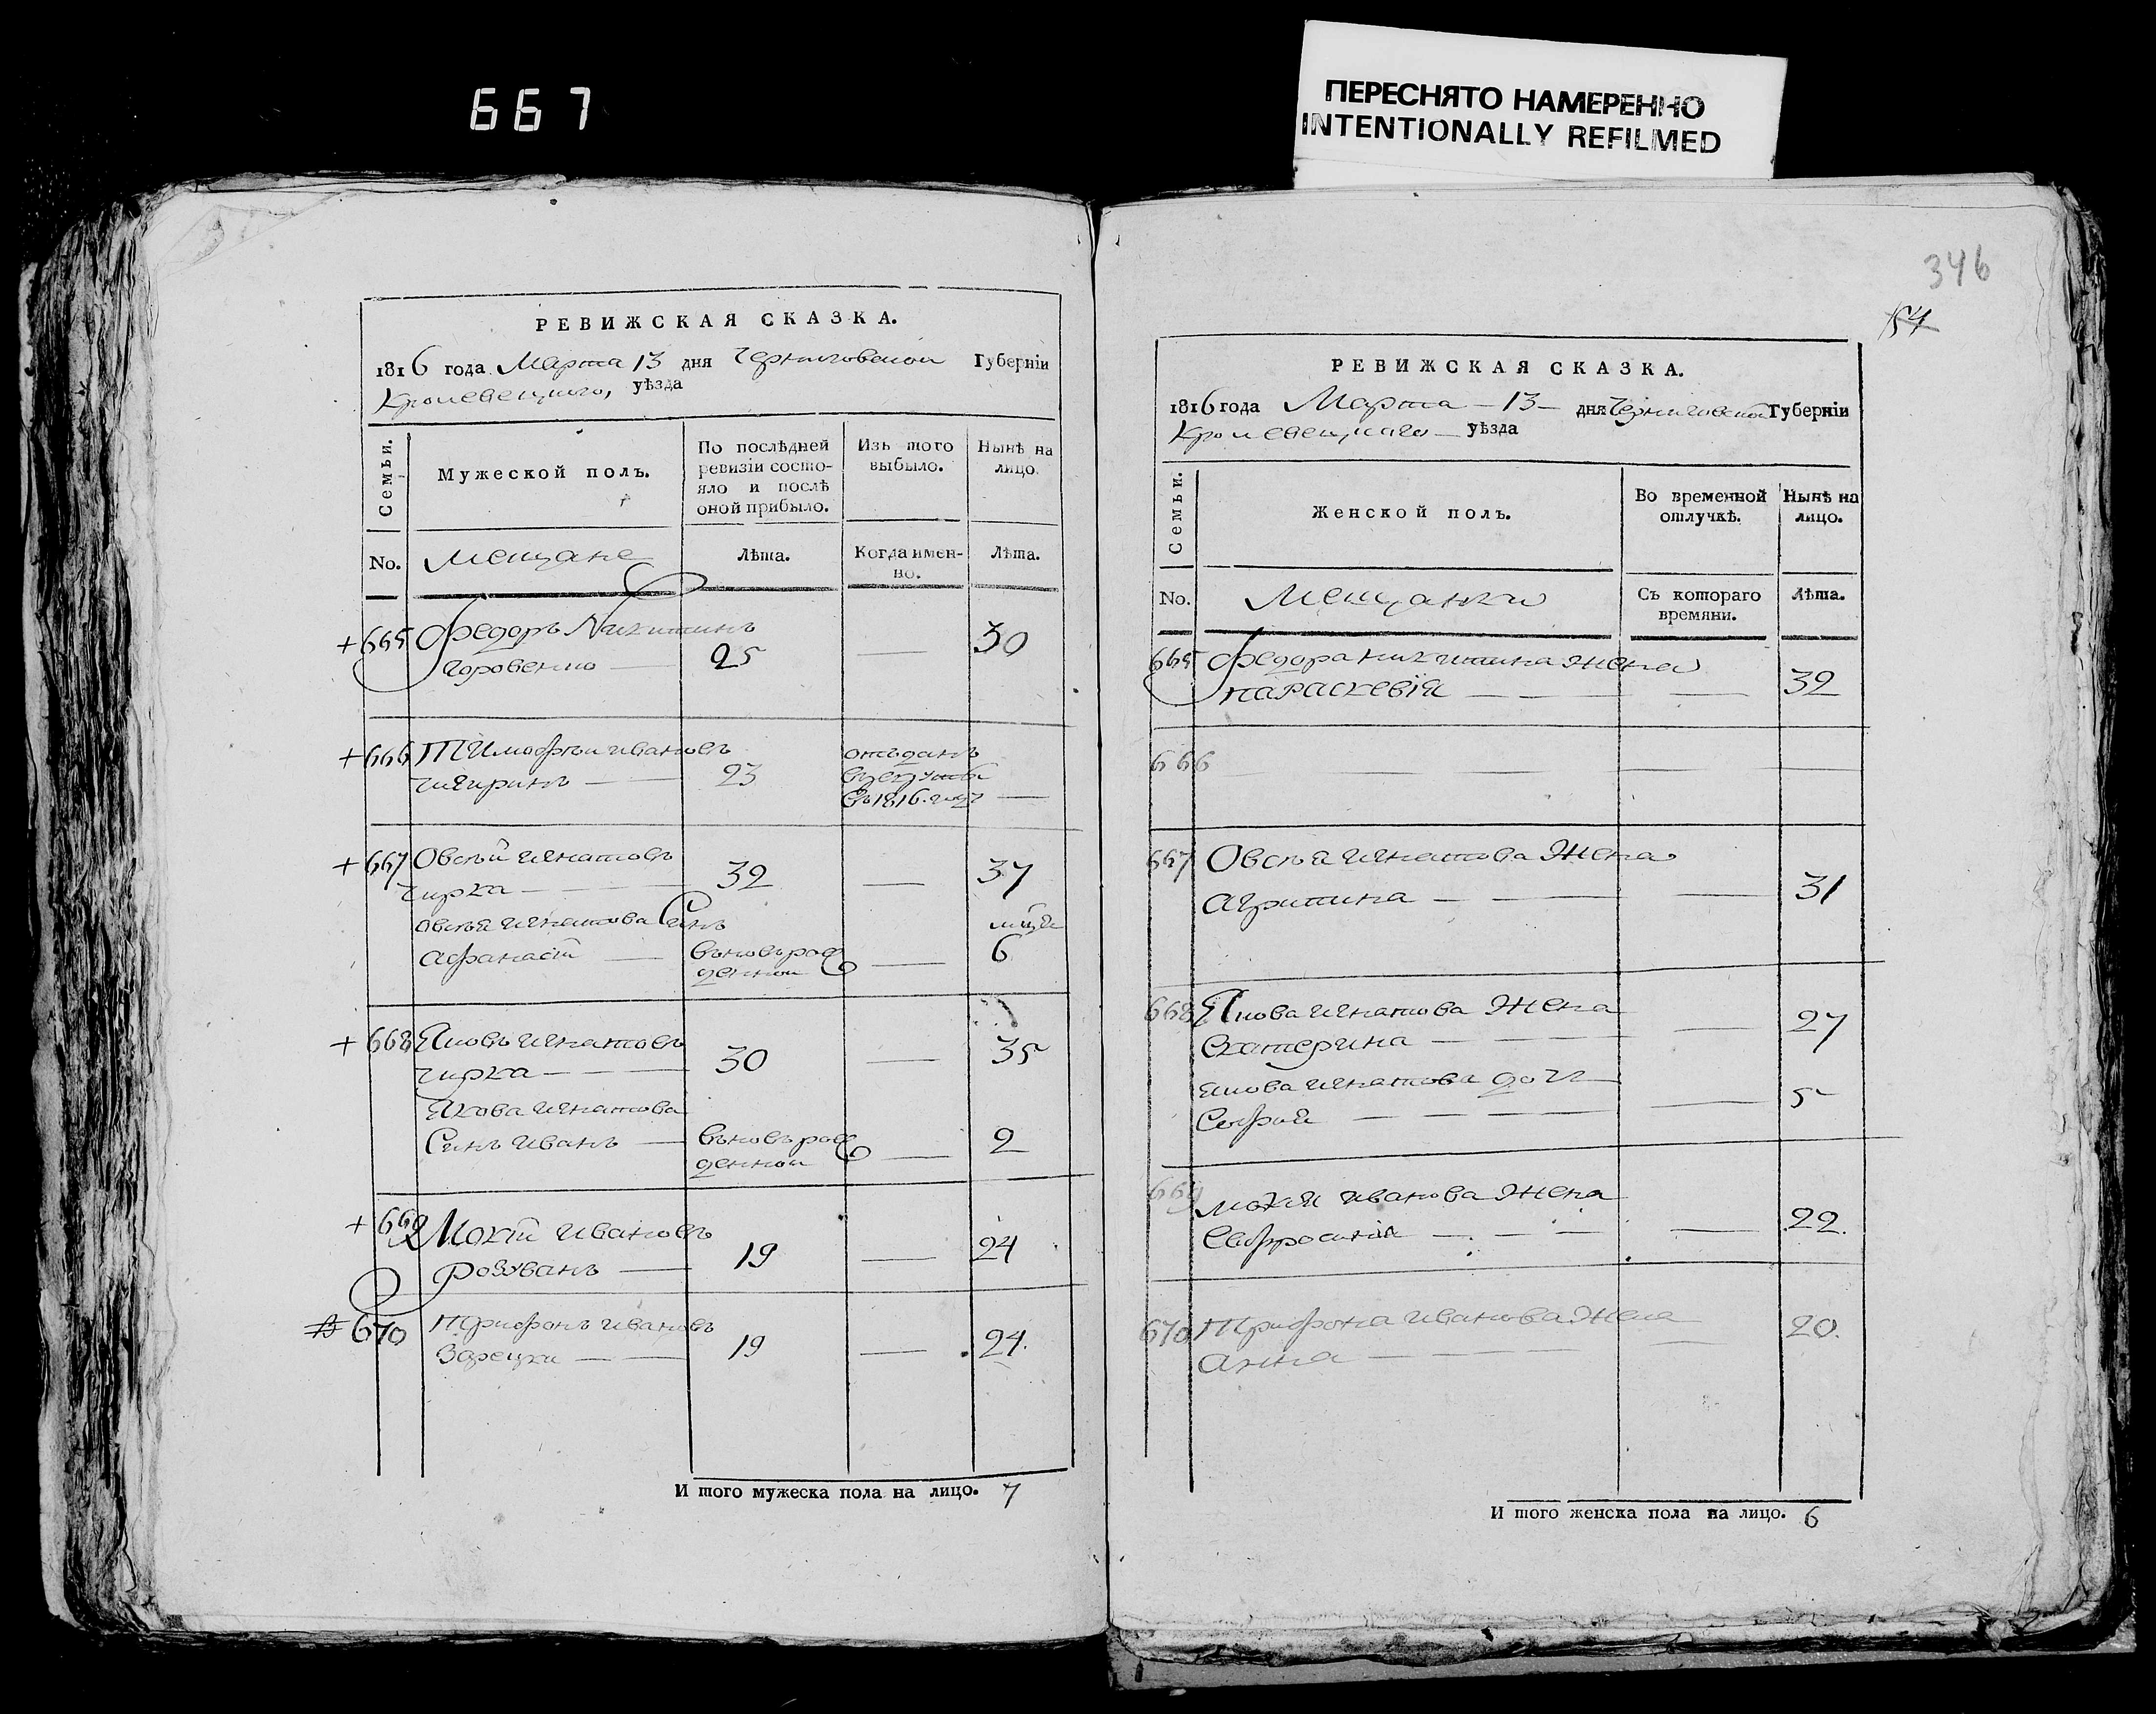 667
ПЕРЕСНЯТО НАМЕРЕННО
INTENTIONALLY REFILMED
346
154
РЕВИЖСКАЯ СКАЗКА.
1816 года Марта 13 дня Черниговской Губерніи
Кролевецкого, уѣзда
Семьи.
Мужеской полъ.
По послѣдней
ревизіи состо-
яло и послѣ
оной прибыло.
Изъ того
выбыло.
Нынѣ на
лицо.
No.
мещане
Лѣта.
Когда имен-
но.
Лѣта.
+665 Федоръ Никитинъ
Горовенко — 25 — 30
+666 Тимофѣй Ивановъ отъданъ
Чигиринъ — 23
въ 1816. году —
+667 Овсѣй Игнатовъ
Чирка — 32 — 37
овсѣя Игнатова Синъ
Афанасій — вновьрож
денной — 6
+668 Яковъ Игнатовъ
Чирка — 30 — 35
Якова Игнатова
Синъ Иванъ — вновьрож
денной — 2
+669 Мокій Ивановъ
Розуванъ — 19 — 24
670 Трифонъ Ивановъ
Зарецки — 19 — 24.
И того мужеска пола на лицо. 7
РЕВИЖСКАЯ СКАЗКА.
1816 года Марта — 13 — дня Черниговской Губерніи
Кролевецкаго — уѣзда
Семьи.
Женской полъ.
Во временной
отлучкѣ.
Нынѣ на
лицо.
No.
Мещанки
Съ котораго
времяни.
Лѣта.
665 Федора Никитина Жена
параскевія — — 32
666 — — —
667 Овсѣя Игнатова Жена
Агрипина — — 31
668 Якова Игнатова Жена
Екатерина — — 27
Якова Игнатова дочь
София — — 5
669 Мокія Иванова Жена
Евфросинія — — 22.
670 Трифона Иванова Жена
Анна — — 20.
И того женска пола на лицо. 6